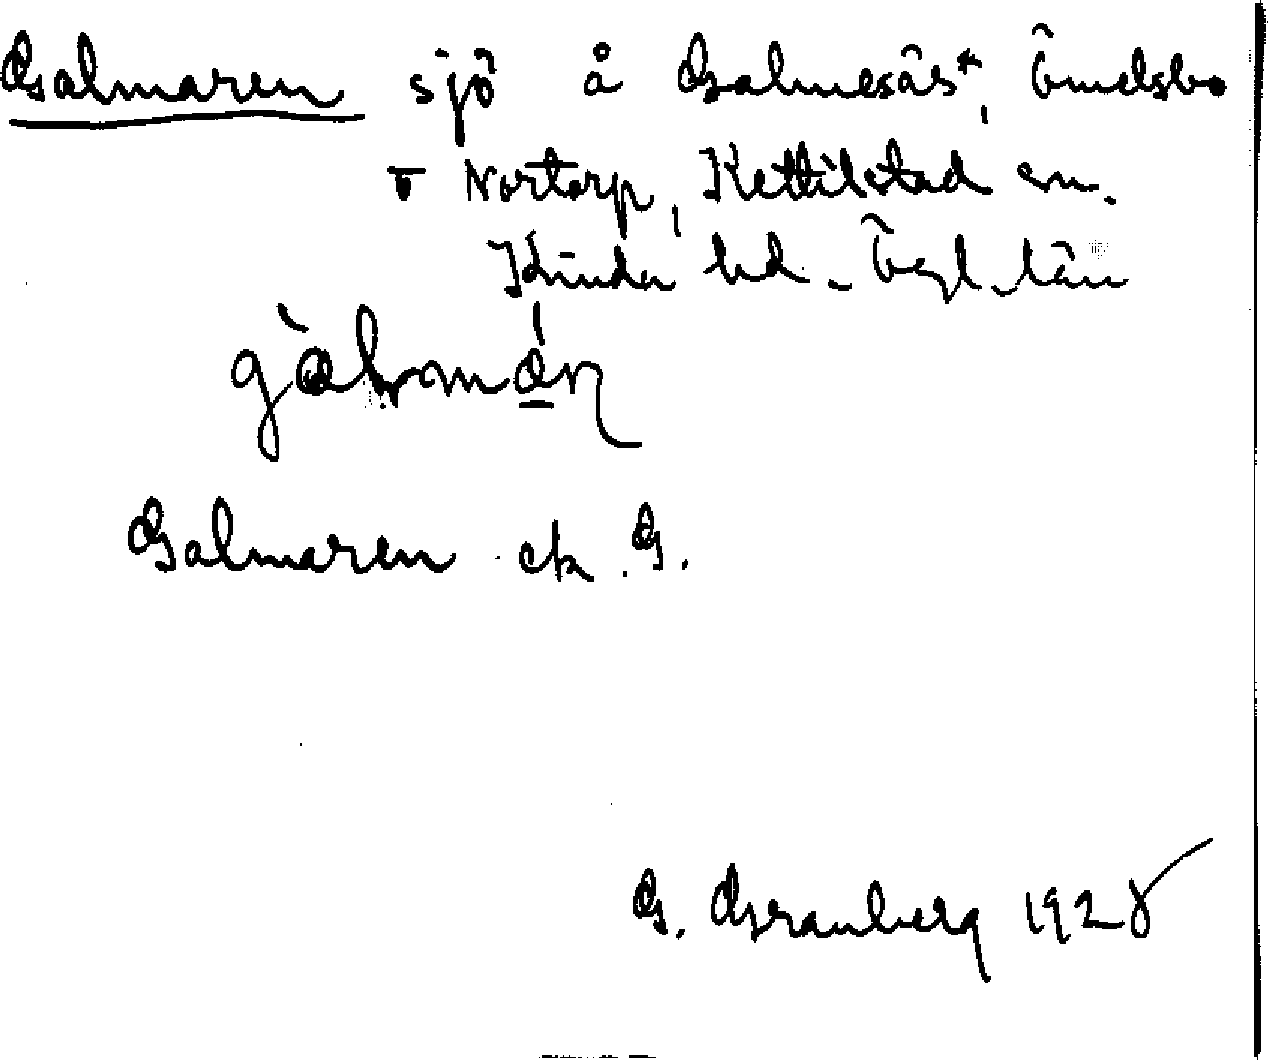 Galmaren sjö å Galmesås*, Öndsbo
o Nortorp, Kettilstad sn.
Kinda hd. Ögl. län
gàlmán
Galmaren ek. G.
G. Granberg 1928